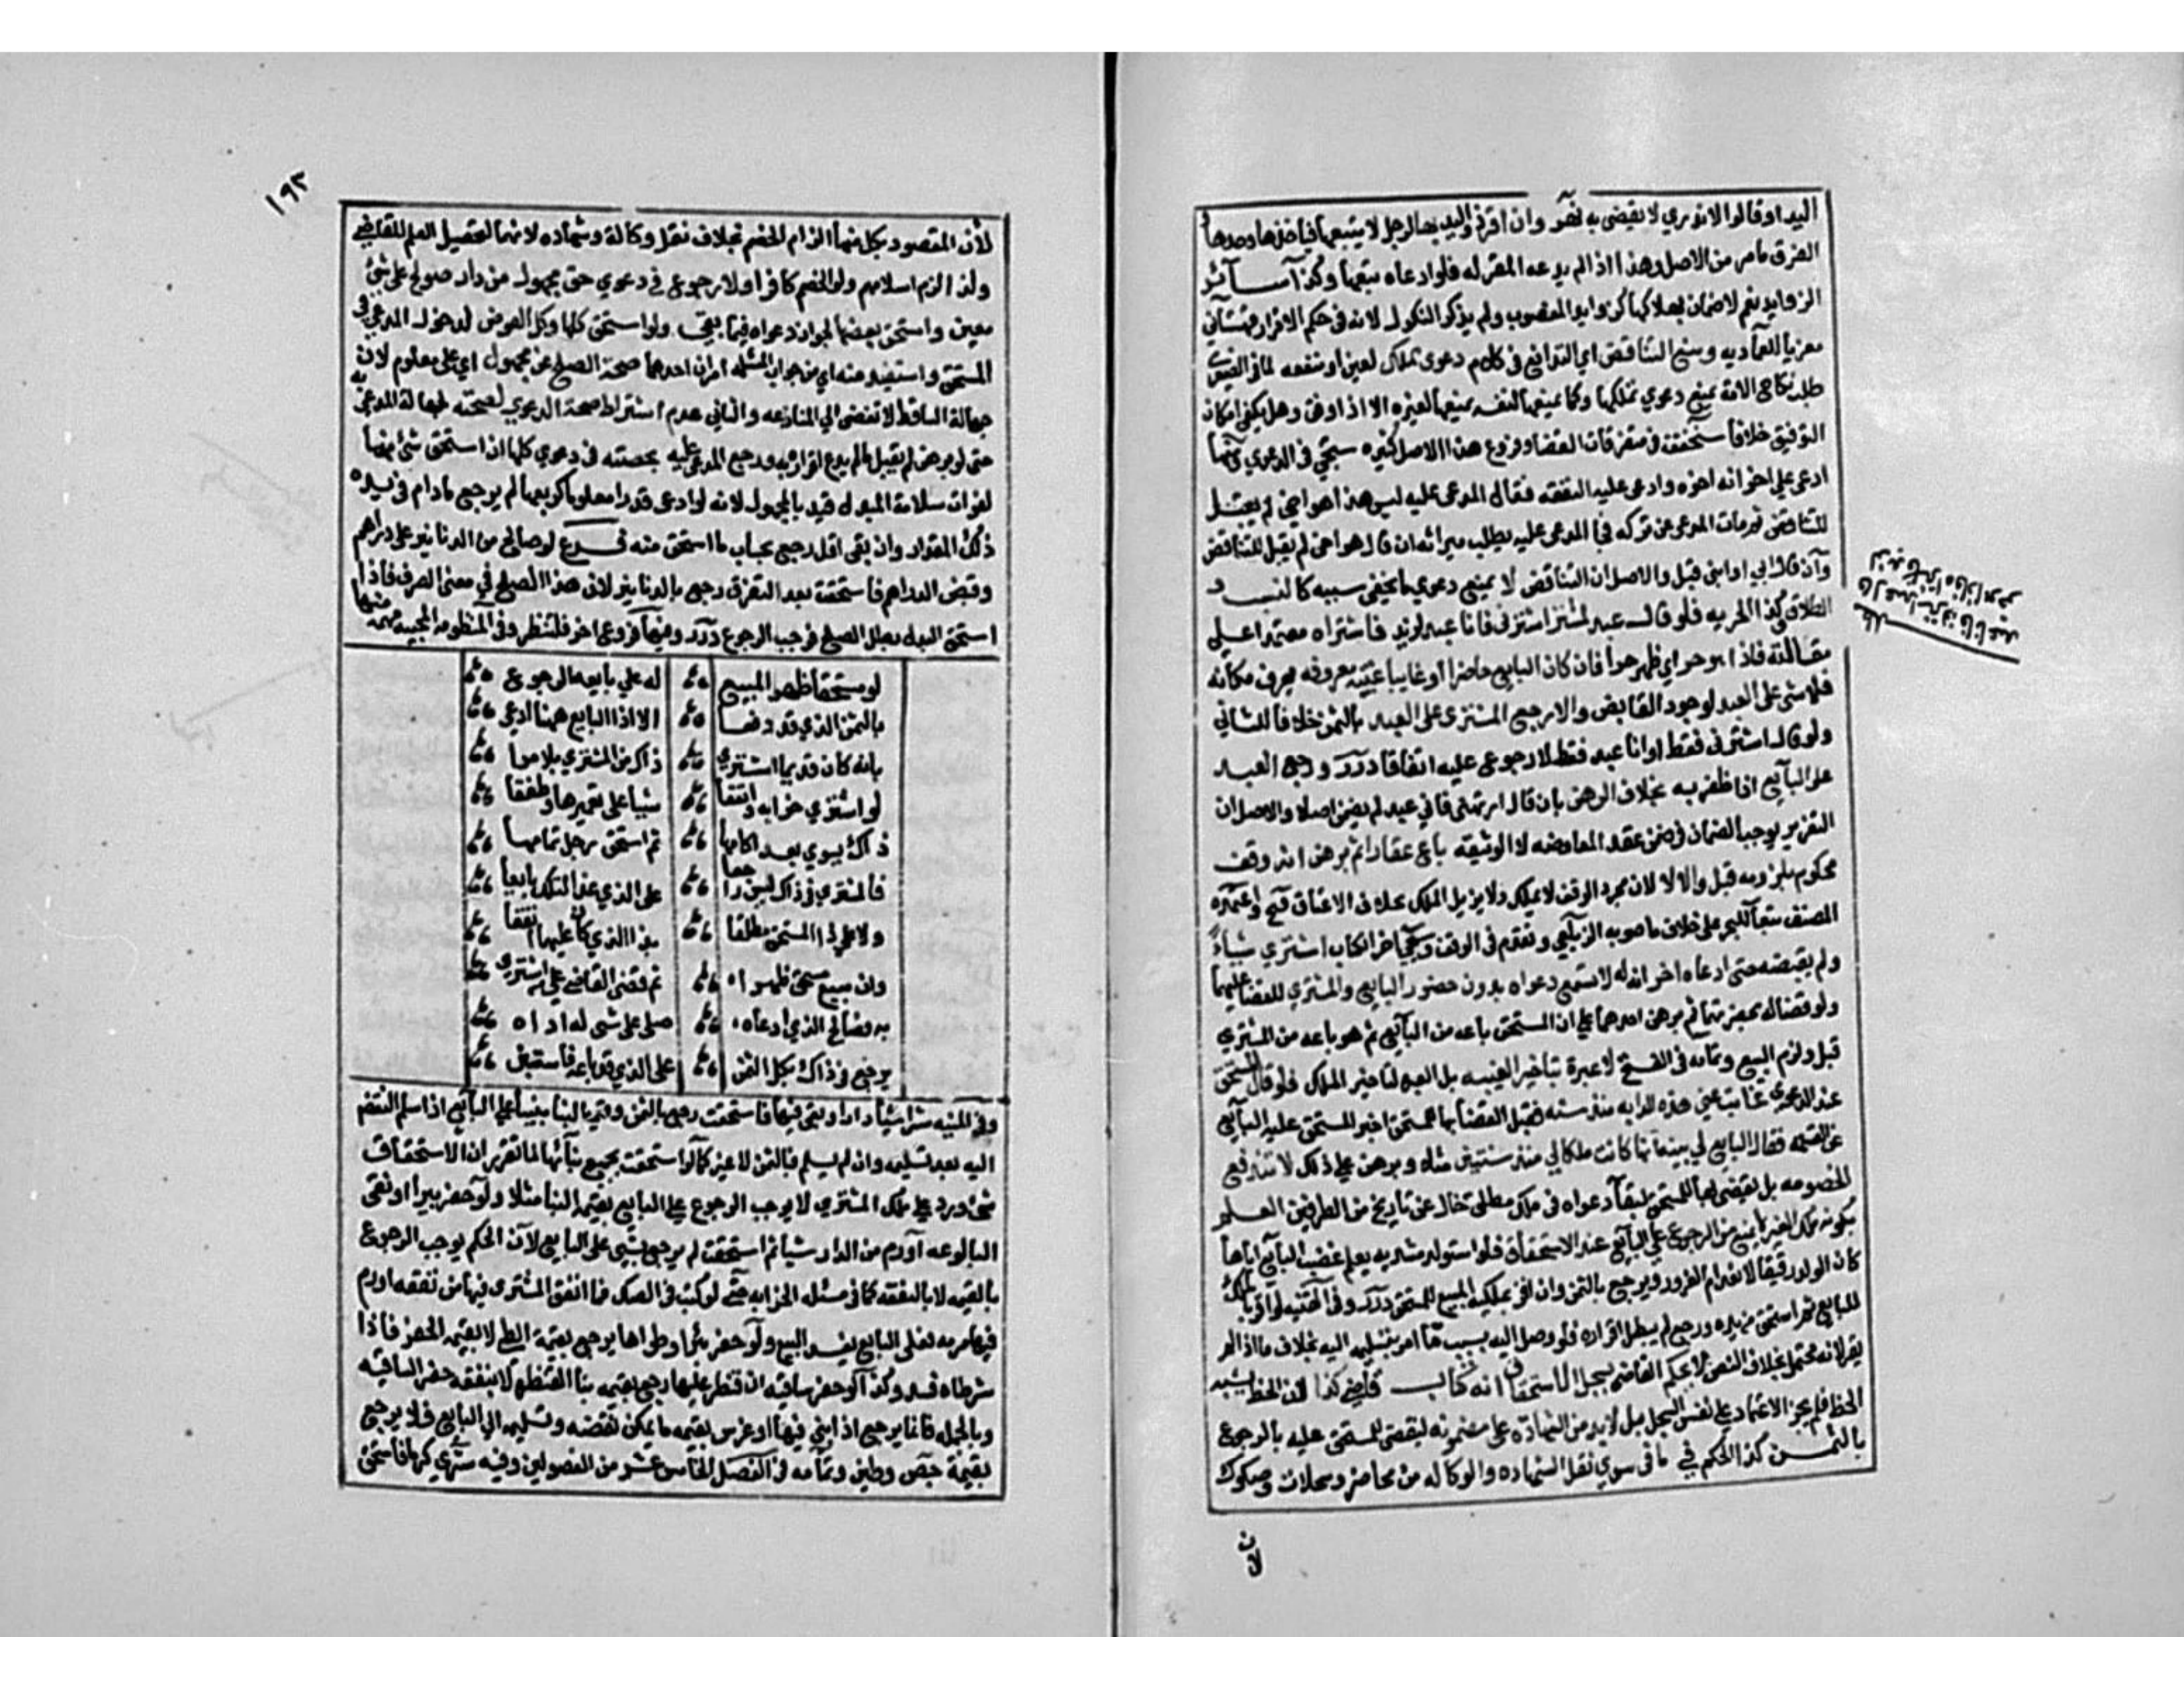 اليد او قالوا لا ندري لا يقضى به نهر وان اقر ذو اليد بها لرجل لا يتبعها فيأخذها وحدها
الفرق مامر من الاصل وهذا اذا لم يدعه المقر له فلو ادعاه يتبعها وكذا سائر
الزوايد نعم لا ضمان بهلاكها كزوايد المغصوب ولم يذكر النكول لانه في حكم الاقرار قهستاني
معزيا للعماديه ومنع التناقض اي التدافع في كلامه دعوى ملك لعين او منفعه لما في الصغرى
طلب نكاح الامة يمنع دعوي تملكها وكما يمنعها لنفسه يمنعها لغيره الا اذا وفق وهل يكفي امكان
التوفيق خلاف سنحققه في متفرقات القضا وفروع هذا الاصل كثيره ستجي في الدعوي ومنها
ادعى على اخر انه اخوه وادعى عليه النفقه فقال المدعى عليه ليس هذا هو اخي ثم
للتناقض ثم مات المدعي عن تركه فجا المدعى عليه يطلب ميراثه ان قال هو اخي لم يقبل للتناقض
وان قال ابي او ابني قبل والاصل ان التناقض لا يمنع دعوي ما يخفى سببه كالنسب و
الطلاق وكذا الحريه فلو قال عبد لمشتر اشترني فانا عبد لزيد فاشتراه معتمدا على
مقالته فاذا هو حر اي ظهر حرا فان كان البايع حاضرا او غايبا غيبة معروفه يعرف مكانه
فلا شئ على العبد لوجود القابض والا رجع المشتري على العبد بالثمن خلافا للثاني
ولو قال اشترني فقط او انا عبد فقط لا رجوع عليه اتفاقا درر ورجع العبد
على البايع اذا ظفر به بخلاف الرهن بان قال ارتهني فاني عبد لم يضمن اصلا والاصل ان
التغرير يوجب الضمان في ضمن عقد المعاوضه لا الوثيقه باع عقارا ثم برهن انه وقف
محكوم بلزومه قبل والا لا لان مجرد الوقف لا يزيل الملك بخلاف الاعتاق فتح واعتمده
المصنف تبعا للبحر على خلاف ما صوبه الزيلعي وتقدم في الوقف وسيجي اخر الكتاب اشتري شيأ
ولم يقبضه حتى ادعاه اخر انه له لا تسمع دعواه بدون حضور البايع والمشتري للقضا عليهما
ولو قضا له بحضرتهما ثم برهن احدهما على ان المستحق باعه من البايع ثم هو باعه من المشتري
قبل ولزم البيع وتمامه في الفتح لا عبرة بتاخير الغيبه بل العبرة لتاخير الملك فلو قال المستحق
عند الدعوى غابت عني هذه الدابه منذ سنه فقبل القضا بها للمستحق اخبر المستحق عليه البايع
عن القصه فقال البايع لي بينة انها كانت ملكا لي منذ سنتين مثلا وبرهن على ذلك لا تندفع
الخصومه بل يقضى بها للمستحق لبقا دعواه في ملك مطلق خال عن تاريخ من الطرفين العلم
بكونه ملك الغير لا يمنع من الرجوع على البايع عند الاستحقاق فلو استولد مشريه يعلم غصب البايع اياها
كان الولد رقيقا لانعدام الغرور ويرجع بالثمن وان اقر بملكية المبيع للمستحق درر وفي القنيه لو اقر بالملك
للبايع ثم استحق من يده ورجع لم يبطل اقراره فلو وصل اليه بسبب ما امر بتسليمه اليه بخلاف ما اذا لم
يقر لانه محتمل بخلاف النص لا يحكم القاضي بسجل الاستحقاق انه كتاب قاضي كذا لان الخط يشبه
الخط فلم يجز الاعتماد على نفس السجل بل لا بد من الشهادة على مضمونه ليقضى للمستحق عليه بالرجوع
بالثمن كذا الحكم في ما في سوي نقل الشهاده والوكاله من محاضر وسجلات وصكوك
لان
١٩٣
لان المقصود بكل منها الزام الخصم بخلاف نقل وكالة وشهاده لانهما لتحصيل العلم للقاضي
ولذا لزم اسلامهم ولو الخصم كافرا ولا رجوع في دعوي حق مجهول من دار صولح على شئ
معين واستحق بعضها لجواز دعواه فيما بقي ولو استحق كلها رد كل العوض لدخول المدعي في
المستحق واستفيد منه اي من جواب المسئله امران احدهما صحة الصلح عن مجهول اي على معلوم لان
جهالة الساقط لا تفضي الي المنازعه والثاني عدم اشتراط صحة الدعوي لصحته لجهالة المدعى به
حتى لو برهن لم يقبل ما لم يدع اقراره به ورجع المدعى عليه بحصته في دعوي كلها اذا استحق شئ منها
لفوات سلامة المبدل قيد بالمجهول لانه لو ادعى قدرا معلوما كربعها لم يرجع مادام في يده
ذلك المقدار وان بقي اقل رجع بحساب ما استحق منه فرع لو صالح من الدنانير على دراهم
وقبض الدراهم فاستحقت بعد التفرق رجع بالدنانير لان هذا الصلح في معنى الصرف فاذا
استحق البدل بطل الصلح فوجب الرجوع درر وفيها فروع اخر فلتنظر وفي المنظومه المحبيه مهمه منها
لو مستحقا ظهر المبيع له على بايعه الرجوع
بالثمن الذي قد دفعا الا اذا البايع ههنا ادعى
بانه كان قديما اشترى ذاك من المشتري بلا مرا
لو اشتري خرابة وانفقا شيا على تعميرها وطفقا
ذاك يسوي بعد اكامها ثم استحق رجل تمامها
فالمشتري في ذاك ليس راجعا على الذي غدا لتلك بايعا
ولا على ذا المستحق مطلقا بذا الذي كان عليها انفقا
وان مبيع مستحق ظهرا ثم قضى القاضي على من اشترى
به فصالح الذي ادعاه صلحا على شئ له اداه
يرجع في ذاك بكل الثمن على الذي قد باعه فاستبن
وفي المنيه شرا دارا وبنى فيها فاستحقت رجع بالثمن وقيمة البنا مبنيا على البايع اذا سلم النقض
اليه بعد تسليمه وان لم يسلم فبالثمن لا غير كما لو استحقت بجميع بنائها لما تقرر ان الاستحقاق
متى ورد على ملك المشتري لا يوجب الرجوع على البايع بقيمة البنا مثلا ولو حفر بيرا او نقى
البالوعه او رم من الدار شيا ثم استحقت لم يرجع بشي على البايع لان الحكم يوجب الرجوع
بالقيمه لا بالنفقه كما في مسئلة الخرابه حتى لو كتب في الصك فما انفق المشتري فيها من نفقه او رم
فيها مرمه فعلى البايع يفسد البيع ولو حفر بئرا وطواها يرجع بقيمة الطي لا بقيمة الحفر فاذا
شرطاه فسد وكذا لو حفر ساقيه ان قنطر عليها رجع بقيمة بنا القنطره لا بنفقه حفر الساقيه
وبالجمله فانما يرجع اذا بنى فيها او غرس بقيمة ما يمكن نقضه وتسليمه الي البايع فلا يرجع
بقيمة جص وطين وتمامه في الفصل الخامس عشر من الفصولين وفيه شري كرما فاستحق